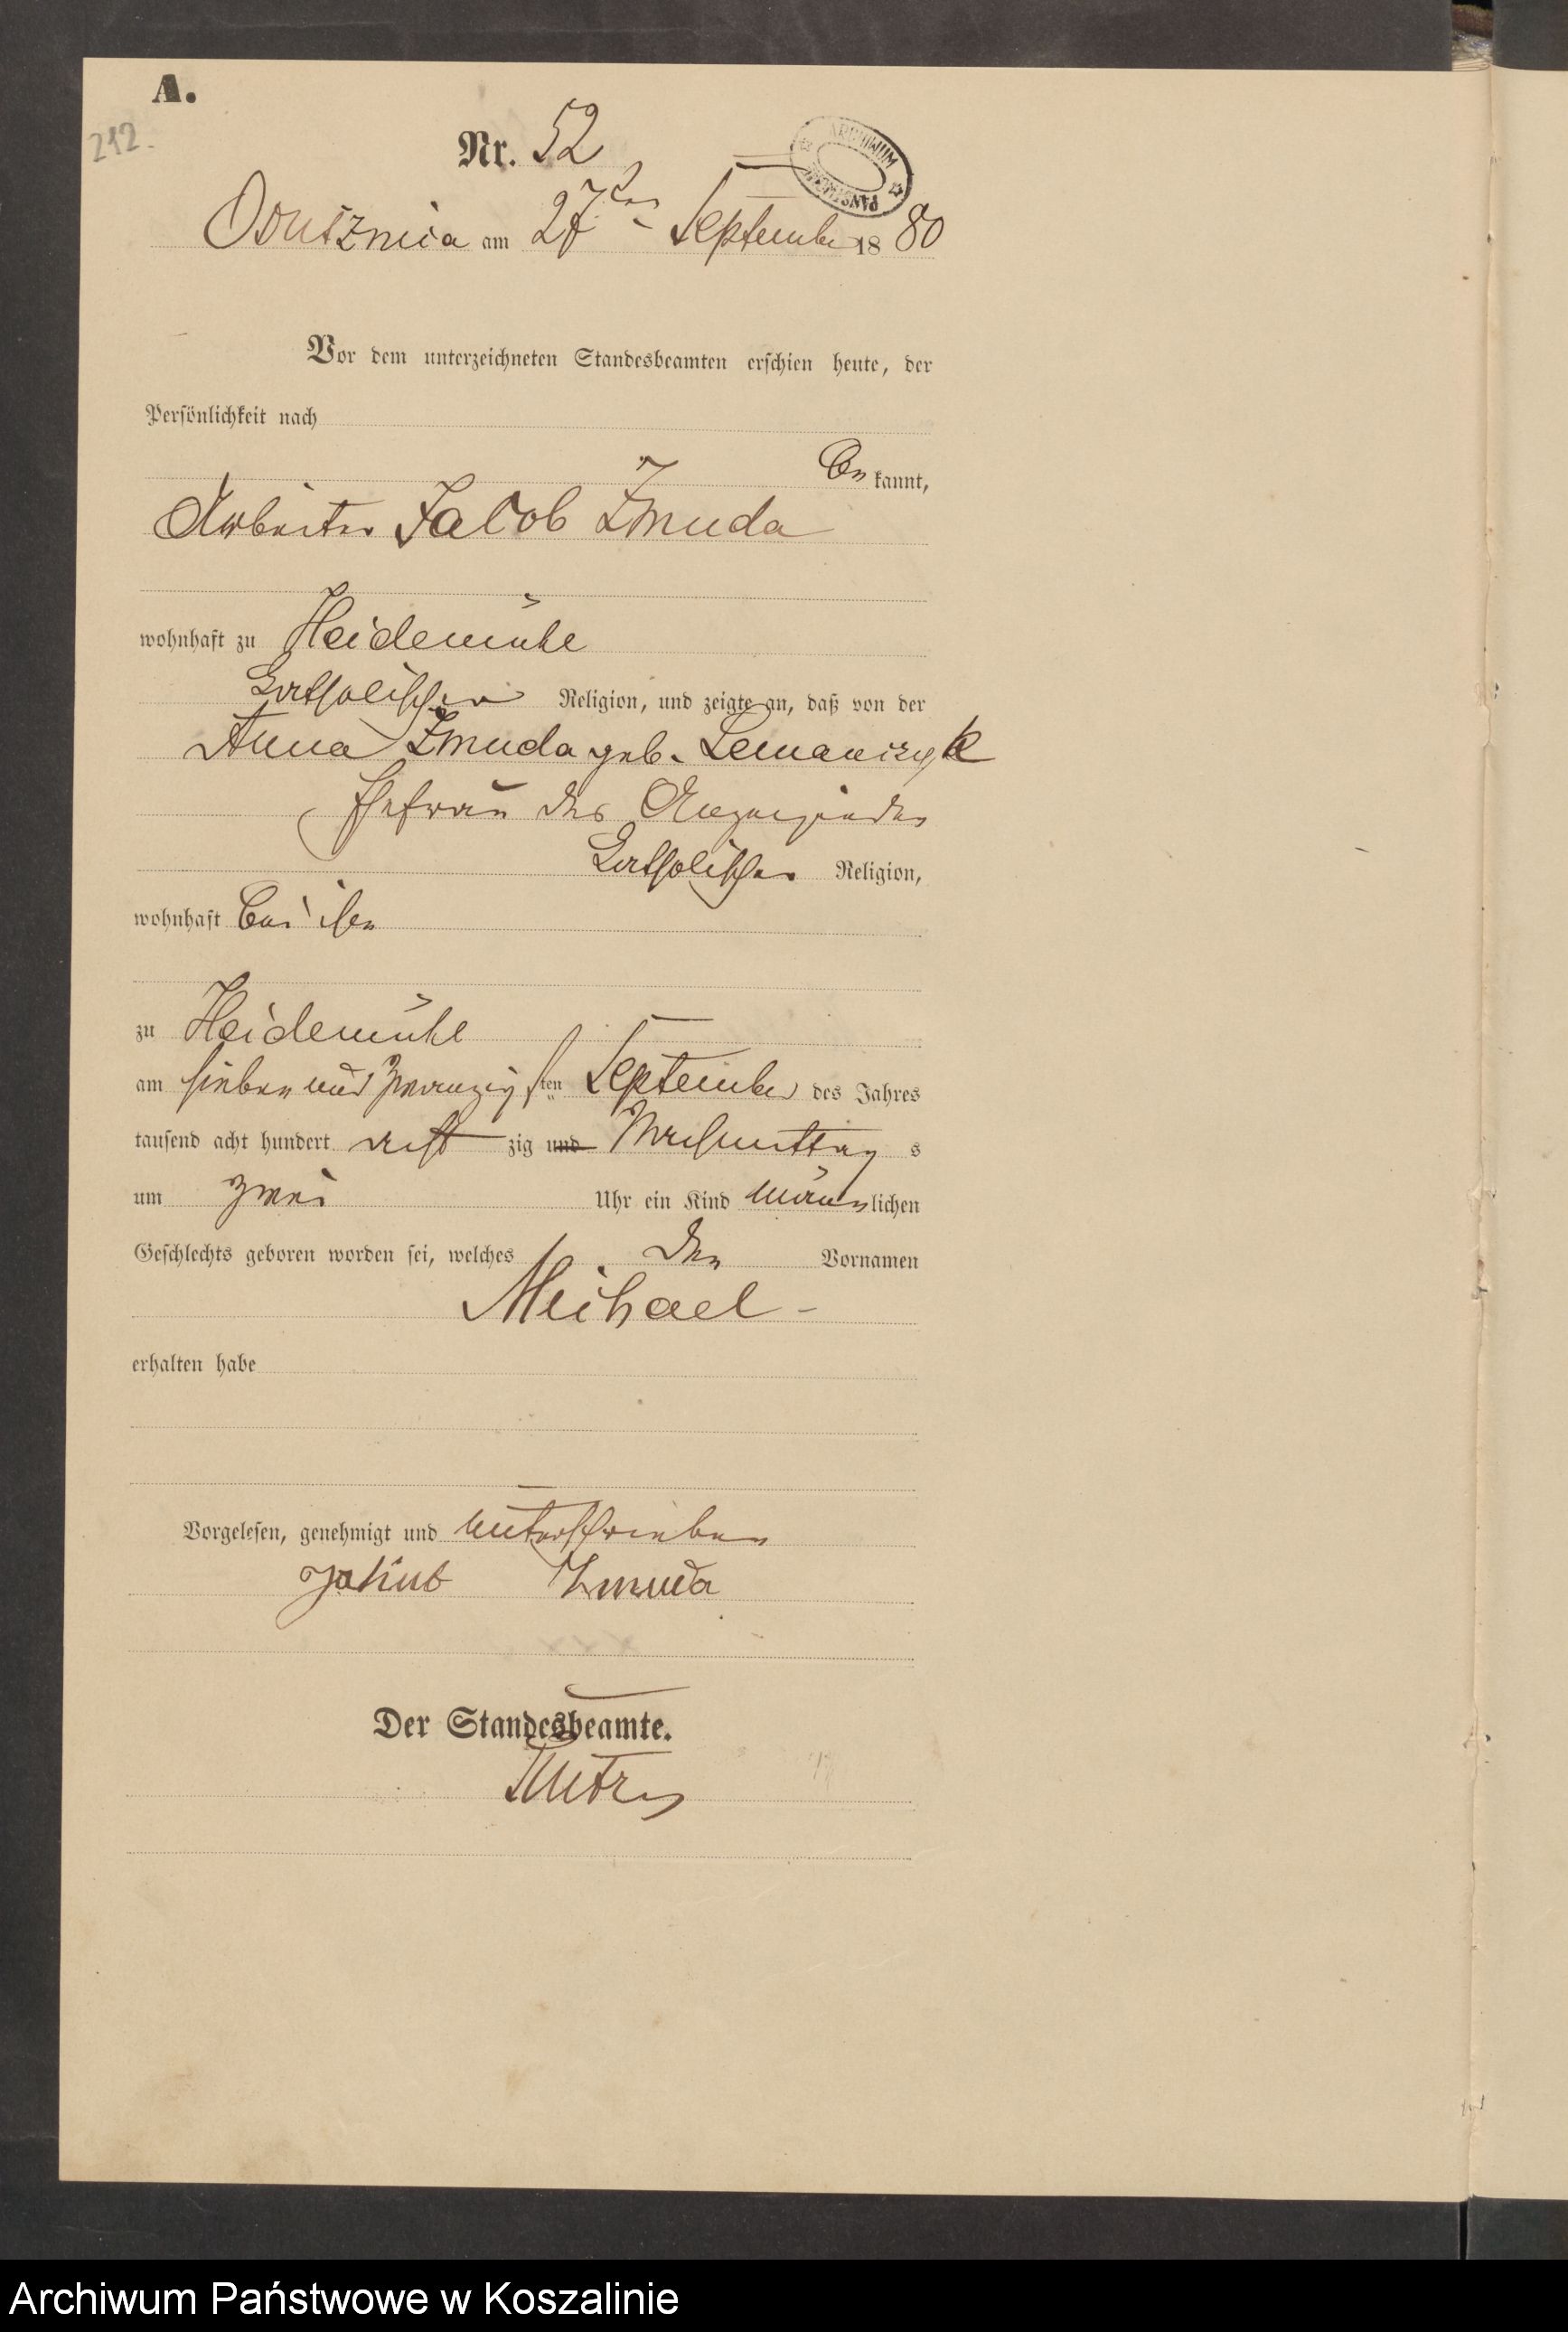 A.
212.
Nr. 52
ARCHIWUM PAŃSTWOWE
Osusznica am 27ten September 1880
Vor dem unterzeichneten Standesbeamten erschien heute, der
Persönlichkeit nach
be kannt,
Arbeiter Jacob Żmuda
wohnhaft zu Heidemühl
katholischer Religion, und zeigte an, daß von der
Anna Żmuda geb. Lemanczyk
Ehefrau des Anzeigenden
katholischer Religion,
wohnhaft bei ihm
zu Heidemühl
am sieben und zwanzigsten September des Jahres
tausend acht hundert acht zig und Nachmittag s
um zwei Uhr ein Kind männlichen
Geschlechts geboren worden sei, welches den Vornamen
Meihael -
erhalten habe
Vorgelesen, genehmigt und unterschrieben
Jakub Zmuda
Der Standesbeamte.
Archiwum Państwowe w Koszalinie